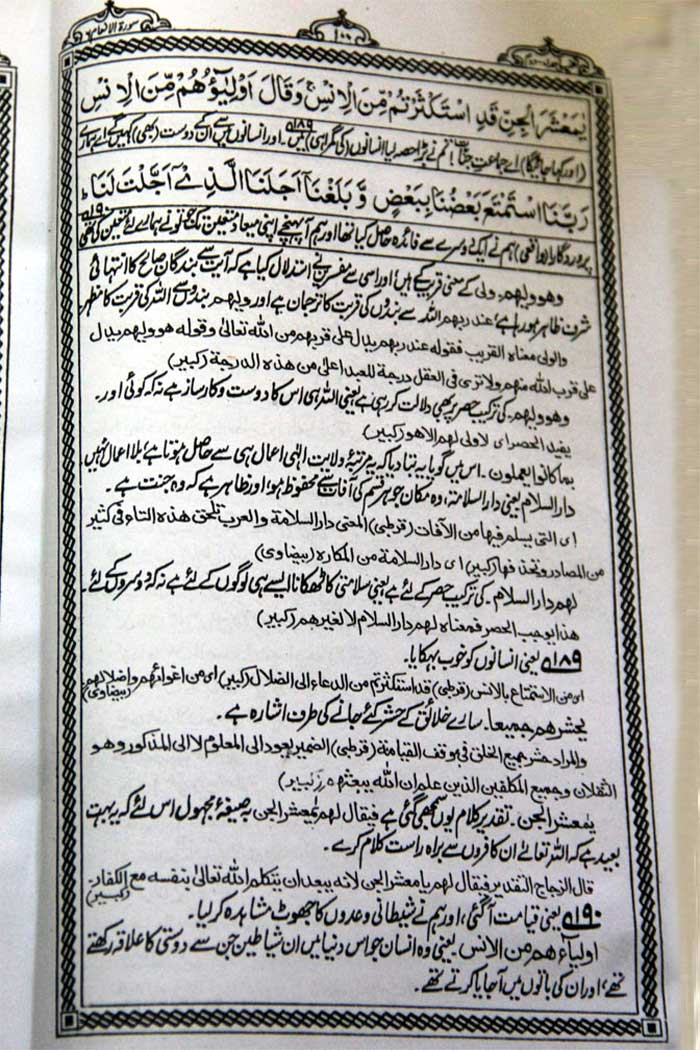 سورۃ الانعام ٦
يٰمَعْشَرَ الْجِنِّ قَدِ اسْتَكْثَرْتُمْ مِّنَ الْاِنْسِ ۚ وَقَالَ اَوْلِيٰٓؤُهُمْ مِّنَ الْاِنْسِ
(اور کہا جائیگا) اے جماعتِ جنات! تم نے بڑا حصہ لیا انسانوں (کی گمراہی) میں ۱۸۹ اور انسانوں میں سے ان کے دوست (بھی) کہیں گے اے ہمارے
رَبَّنَا اسْتَمْتَعَ بَعْضُنَا بِبَعْضٍ وَّ بَلَغْنَآ اَجَلَنَا الَّذِيْٓ اَجَّلْتَ لَنَا ؕ
پروردگار! (واقعی) ہم نے ایک نے دوسرے سے فائدہ حاصل کیا تھا اور ہم آ پہنچے اپنی میعاد معین تک جو تو نے ہمارے لئے معین کی تھی ۱۹۰
وھو ولیھم۔ ولی کے معنی قریب کے ہیں، اور اسی سے مفسرین نے استدلال کیا ہے کہ آیت سے بندگان صالح کا انتہائی
شرف ظاہر ہو رہا ہے، عند ربھم اللہ سے بندوں کی قربت کا ترجمان ہے اور ولیھم بندوں سے اللہ کی قربت کا مظہر
والولی معناہ القریب فقولہ عند ربھم یدل علی قربھم من اللہ تعالیٰ وقولہ ھو ولیھم یدل
علی قرب اللہ منھم ولا نری فی العقل درجۃ للعبد اعلیٰ من ھذہ الدرجۃ (کبیر)
وھو ولیھم۔ کی ترکیب حصر پر بھی دلالت کر رہی ہے یعنی اللہ ہی اس کا دوست و کارساز ہے نہ کہ کوئی اور۔
یفید الحصر ای لا ولی لھم الا ھو (کبیر)
بما کانوا یعملون۔ اس میں گویا یہ بتا دیا کہ یہ مرتبۂ ولایت الہٰی اعمال ہی سے حاصل ہوتا ہے، بلا اعمال نہیں
دار السلام یعنی دار السلامۃ، وہ مکان جو ہر قسم کی آفات سے محفوظ ہو، اور ظاہر ہے کہ وہ جنت ہے۔
ای التی یسلم فیھا من الآفات (قرطبی) المعنی دار السلامۃ والعرب تلحق ھذہ التاء فی کثیر
من المصادر وتحذفھا (کبیر) ای دار السلامۃ من المکارہ (بیضاوی)
لھم دار السلام۔ کی ترکیب حصر کے لئے ہے یعنی سلامتی کا ٹھکانا ایسے ہی لوگوں کے لئے ہے نہ کہ دوسروں کے لئے۔
ھذا یوجب الحصر فمعناہ لھم دار السلام لا لغیرھم (کبیر)
۱۸۹ یعنی انسانوں کو خوب بہکایا۔
ای من الاستمتاع بالانس (قرطبی) قد استکثرتم من الدعاء الی الضلال (کبیر) ای من اغوائھم واضلالھم (بیضاوی)
یحشرھم جمیعا۔ سارے خلائق کے حشر کئے جانے کی طرف اشارہ ہے۔
والمراد حشر جمیع الخلق فی موقف القیامۃ (قرطبی) الضمیر یعود الی المعلوم لا الی المذکور وھو
الثقلان وجمیع المکلفین الذین علم ان اللہ یبعثھم (کبیر)
یمعشر الجن۔ تقدیر کلام یوں سمجھی گئی ہے فیقال لھم یمعشر الجن بہ صیغۂ مجہول اس لئے کہ یہ بہت
بعید ہے کہ اللہ تعالیٰ ان کافروں سے براہ راست کلام کرے۔
قال الزجاج التقدیر فیقال لھم یا معشر الجن لانہ یبعد ان یتکلم اللہ تعالیٰ بنفسہ مع الکفار۔ (کبیر)
۱۹۰ یعنی قیامت آ گئی، اور ہم نے شیطانی وعدوں کا جھوٹ مشاہدہ کر لیا۔
اولیآءھم من الانس یعنی وہ انسان جو اس دنیا میں ان شیاطین جن سے دوستی کا علاقہ رکھتے
تھے، اور ان کی باتوں میں آجایا کرتے تھے۔